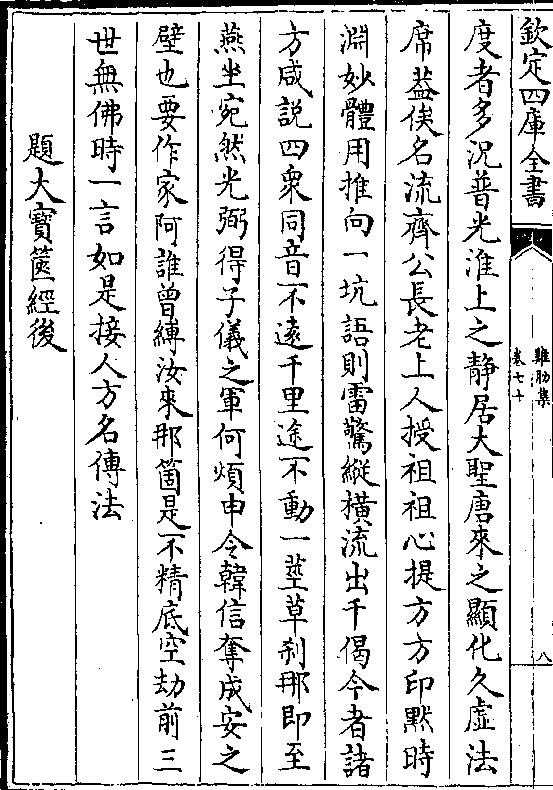 欽定四庫全書
雞肋集
卷七十
八
度者多況普光淮上之静居大聖唐來之顯化久虚法
席葢俟名流齊公長老上人授祖祖心提方方印黙時
淵妙體用推向一坑語則雷驚縱横流出千偈今者諸
方咸説四衆同音不逺千里途不動一莖草刹那即至
燕坐宛然光弼得子儀之軍何煩申令韓信奪成安之
壁也要作家阿誰曾縛汝來那箇是不精底空劫前三
世無佛時一言如是接人方名傳法
題大寳篋經後